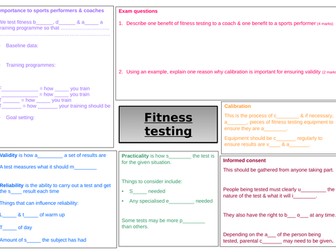 mportance to sports performers & coaches
We test fitness b______, d______ & a______ a
training programme so that ……………………
Baseline data:
Training programmes:
___________ = how ____ you train
___________ = how ____ you train
______ = how _____ you train
_______ = how _____ your training should be
Goal setting:
Exam questions
1. Describe one benefit of fitness testing to a coach & one benefit to a sports performer (4 marks)
2. Using an example, explain one reason why calibration is important for ensuring validity (2 mark
Fitness
testing
Calibration
This is the process of c________ & if necessary,
a_______ pieces of fitness testing equipment to
ensure they are a________.
Equipment should be c________ regularly to
ensure results are v____ & a________.
Validity is how a________ a set of results are
A test measures what it should m_______
Reliability is the ability to carry out a test and get
the s____ result each time
Things that can influence reliability:
L_____ & I_____ of warm up
T____ of day
Amount of s____ the subject has had
Practicality is how s________ the test is
for the given situation.
Things to consider include:
• S_____ needed
• Any specialised e________ needed
Some tests may be more p________
than others.
Informed consent
This should be gathered from anyone taking part.
People being tested must clearly u__________ the
nature of the test & what it will i________.
They also have the right to b___ o___ at any time.
Depending on the a___ of the person
being tested, parental c_______ may need to be given.